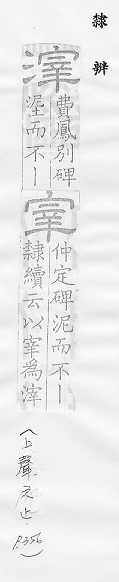 隸辨
滓
費鳳別碑
泥而不｜
宰
仲定碑泥而不｜
隸續云以宰為滓
(上聲 之止 P.356)